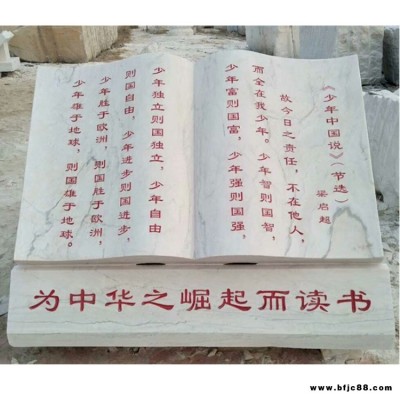 《少年中国说》（节选）
梁启超
故今日之责任，不在他人，
而全在我少年。少年智则国智，
少年富则国富，少年强则国强，
少年独立则国独立，少年自由
则国自由，少年进步则国进步，
少年胜于欧洲，则国胜于欧洲，
少年雄于地球，则国雄于地球。
为中华之崛起而读书
www.bfjc88.com